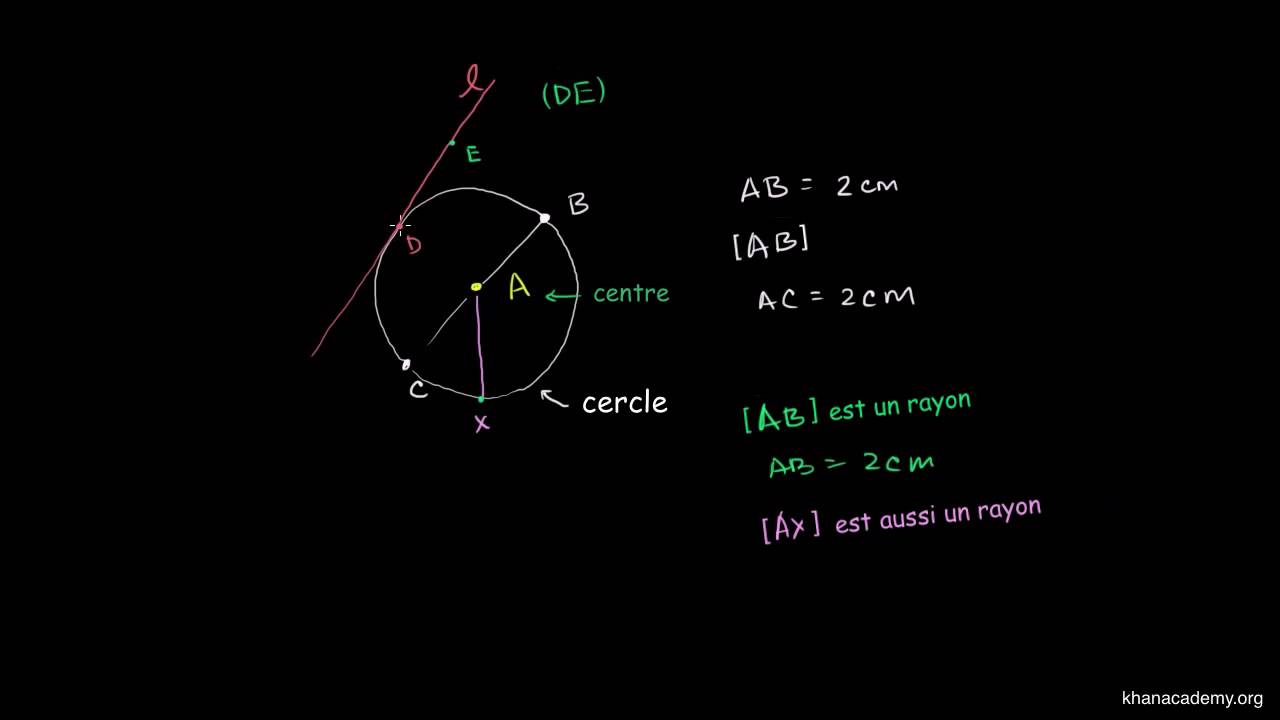 l
(DE)
E
D
B
A
centre
C
X
cercle
AB = 2 cm
[AB]
AC = 2 cm
[AB] est un rayon
AB = 2 cm
[AX] est aussi un rayon
khanacademy.org